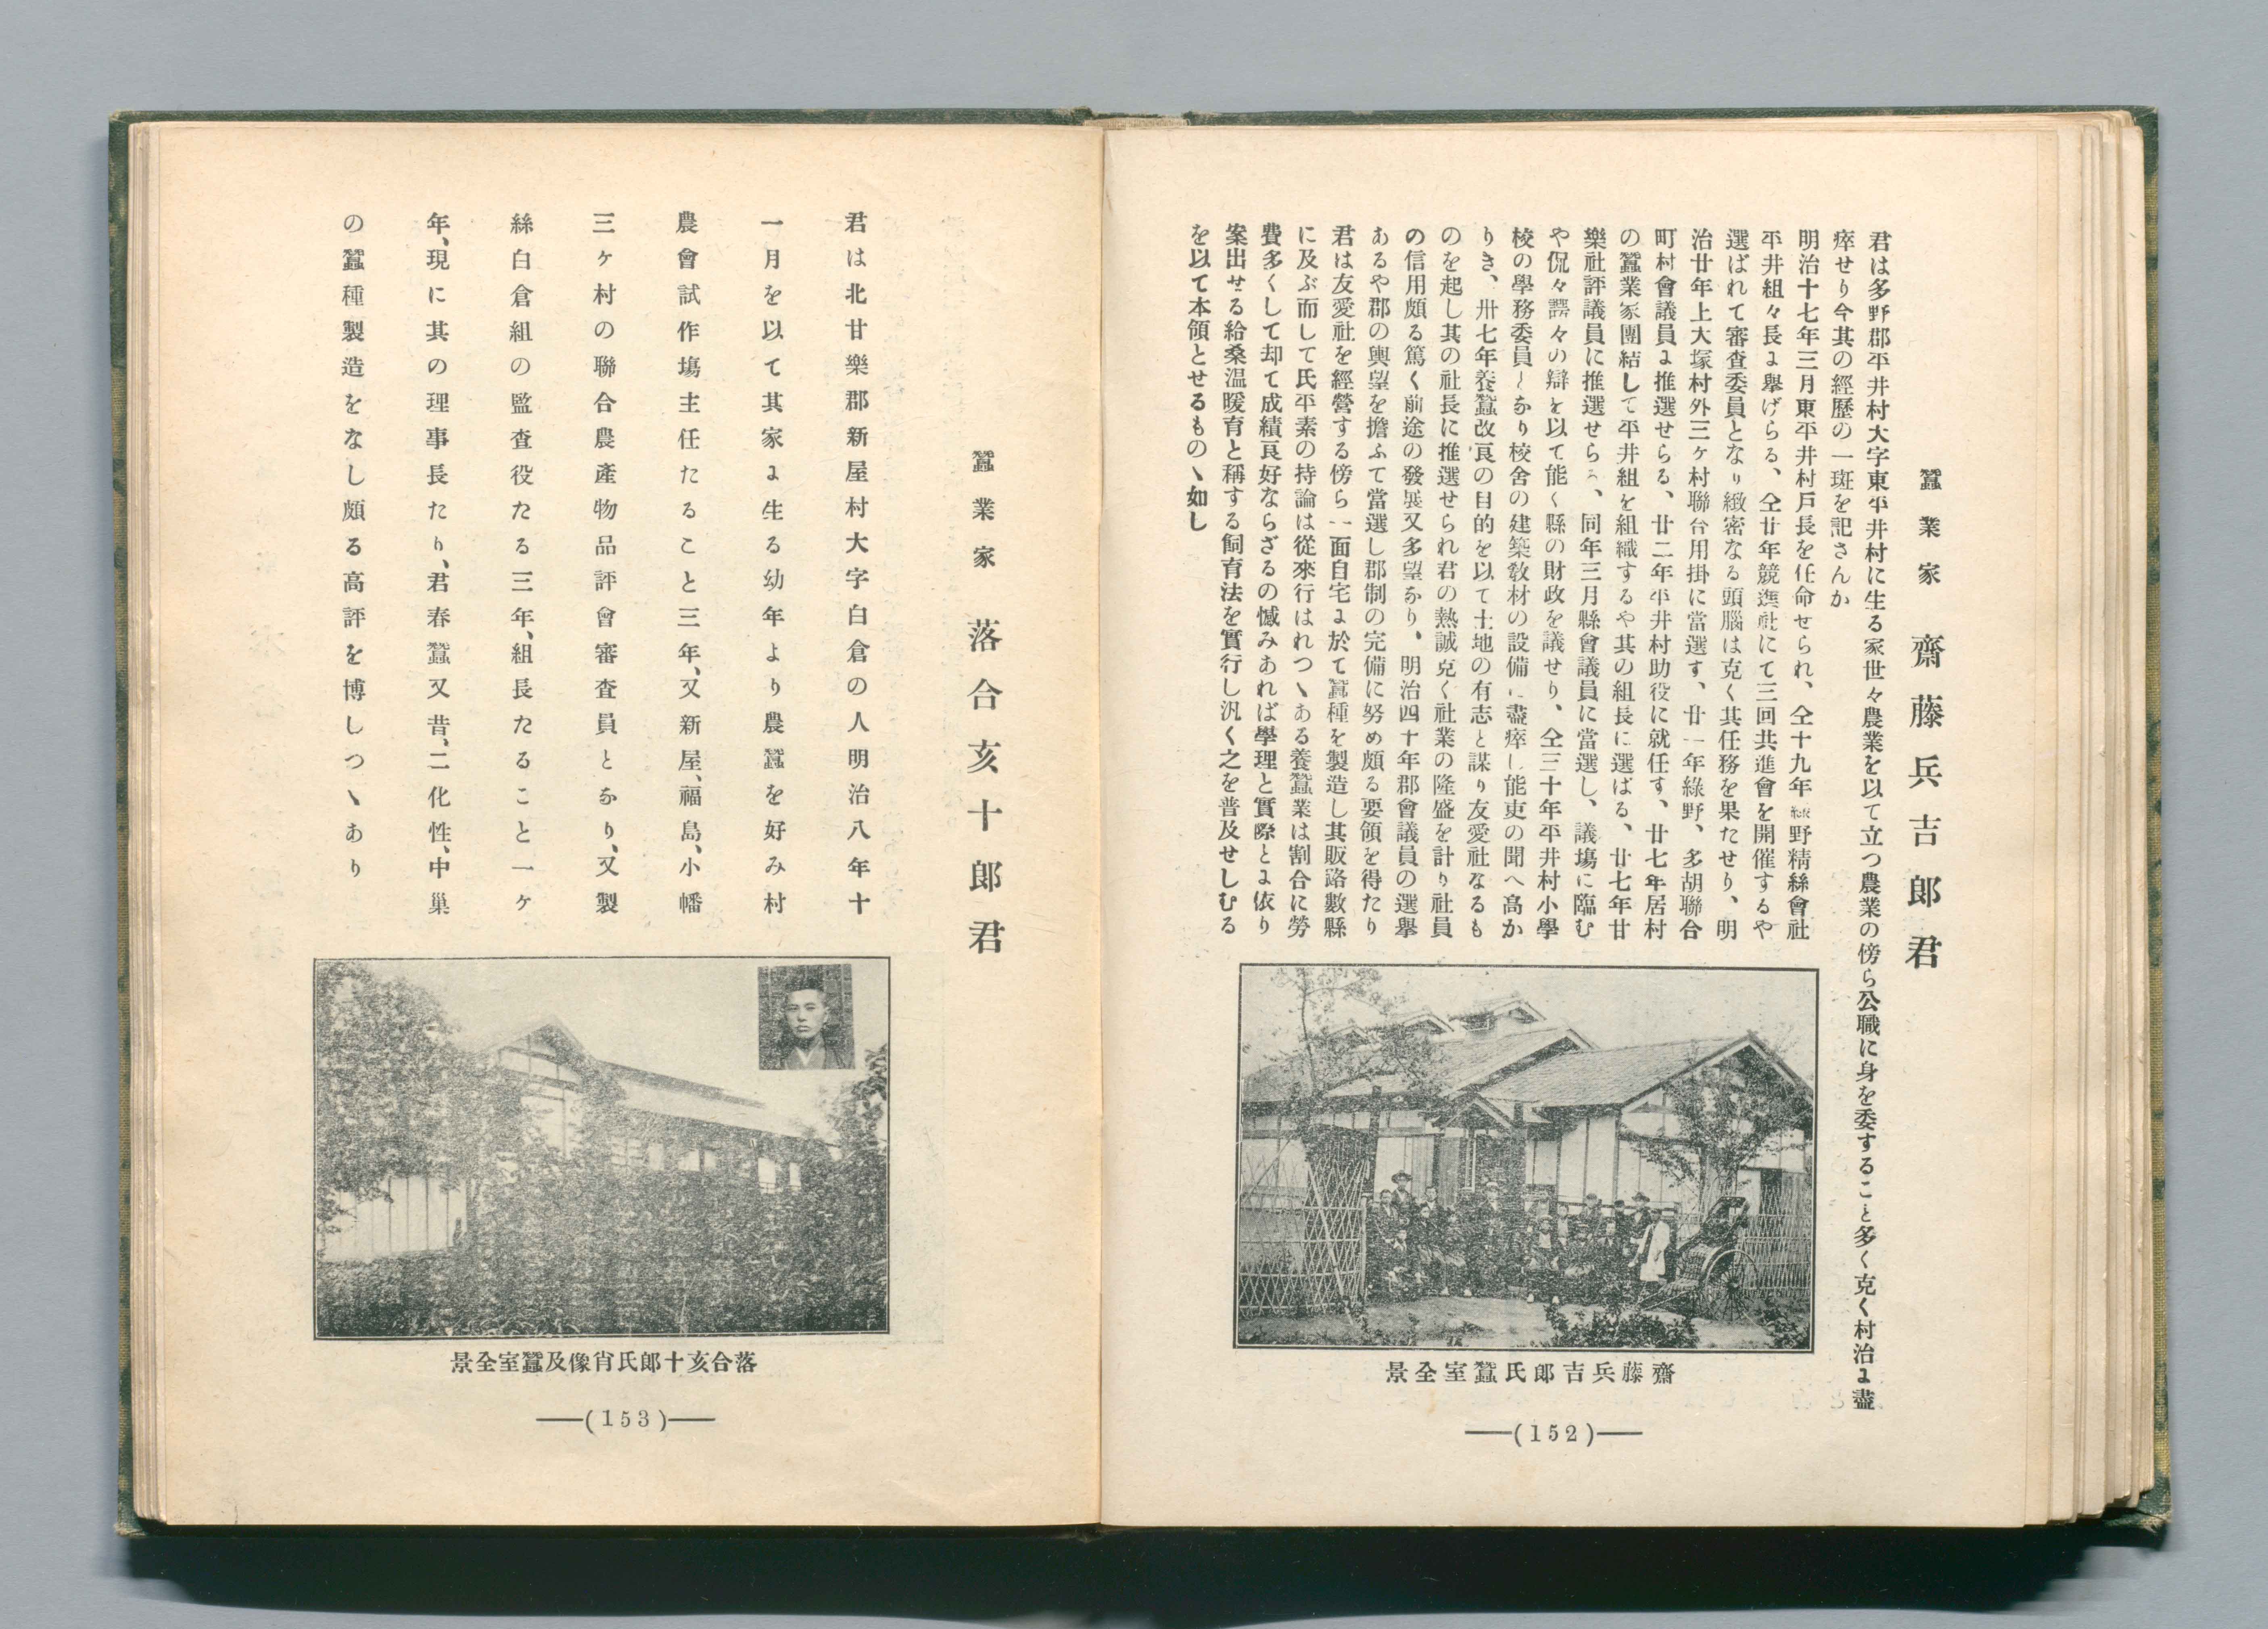 蠶業家 齋藤兵吉郎君
君は多野郡平井村大字東平井村に生る家世々農業を以て立つ農業の傍ら公職に身を委すること多く克く村治に盡
瘁せり今其の經歷の一斑を記さんか
明治十七年三月東平井村戸長を任命せられ、仝十九年綠野精絲會社
平井組々長に擧げらる、仝廿年競進社にて三回共進會を開催するや
選ばれて審査委員となり緻密なる頭腦は克く其任務を果たせり、明
治廿年上大塚村外三ヶ村聯合用掛に當選す、廿一年綠野、多胡聯合
町村會議員に推選せらる、廿二年平井村助役に就任す、廿七年居村
の蠶業家團結して平井組を組織するや其の組長に選ばる、廿七年甘
樂社評議員に推選せらる、同年三月縣會議員に當選し、議塲に臨む
や侃々諤々の辯を以て能く縣の財政を議せり、仝三十年平井村小學
校の學務委員となり校舎の建築敎材の設備に盡瘁し能吏の聞へ高か
りき、卅七年養蠶改良の目的を以て土地の有志と謀り友愛社なるも
のを起し其の社長に推選せられ君の熱誠克く社業の隆盛を計り社員
の信用頗る篤く前途の發展又多望なり、明治四十年郡會議員の選擧
あるや郡の輿望を擔ふて當選し郡制の完備に努め頗る要領を得たり
君は友愛社を經營する傍ら一面自宅に於て蠶種を製造し其販路數縣
に及ぶ而して氏平素の持論は從來行はれつゝある養蠶業は割合に勞
費多くして却て成績良好ならざるの憾みあれば學理と實際とに依り
案出せる給桑温暖育と稱する飼育法を實行し汎く之を普及せしむる
を以て本領とせるものゝ如し
景全室蠶氏郎吉兵藤齋
(152)
蠶業家 落合亥十郎君
君は北甘樂郡新屋村大字白倉の人明治八年十
一月を以て其家に生る幼年より農蠶を好み村
農會試作塲主任たること三年、又新屋、福島、小幡
三ヶ村の聯合農產物品評會審査員となり、又製
絲白倉組の監査役たる三年、組長たること一ヶ
年、現に其の理事長たり、君春蠶又昔、二化性、中巢
の蠶種製造をなし頗る高評を博しつゝあり
景全室蠶及像肖氏郎十亥合落
(153)